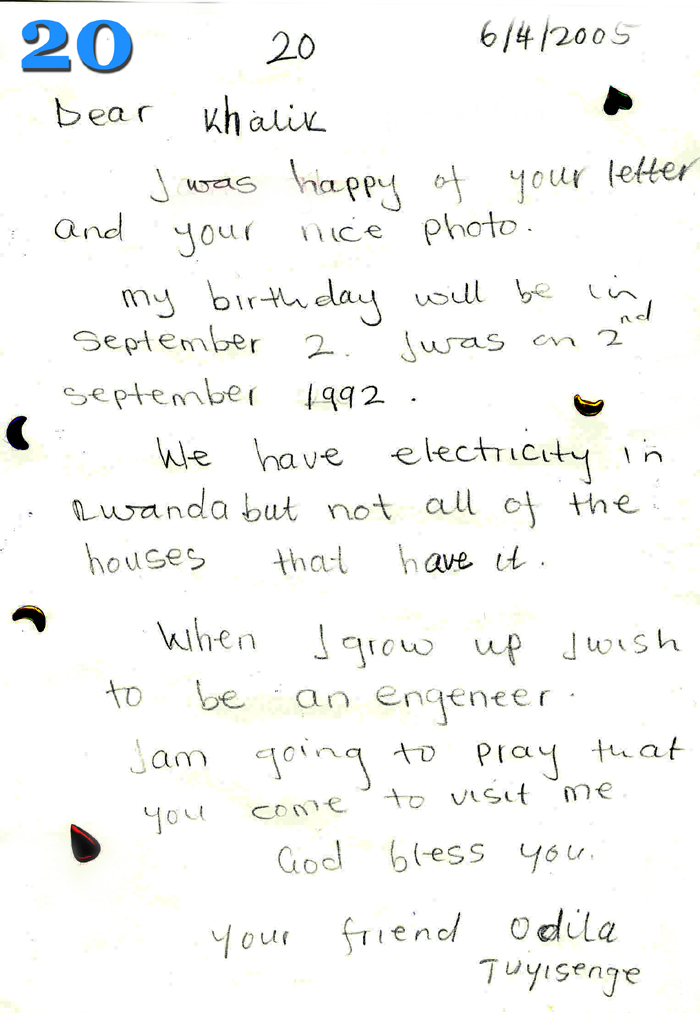 20
20 6/4/2005
Dear Khalik
I was happy of your letter
and your nice photo.
my birthday will be in
September 2. I was on 2nd
september 1992.
We have electricity in
Rwanda but not all of the
houses that have it.
When I grow up I wish
to be an engeneer.
I am going to pray that
you come to visit me
God bless you.
your friend Odila
Tuyisenge